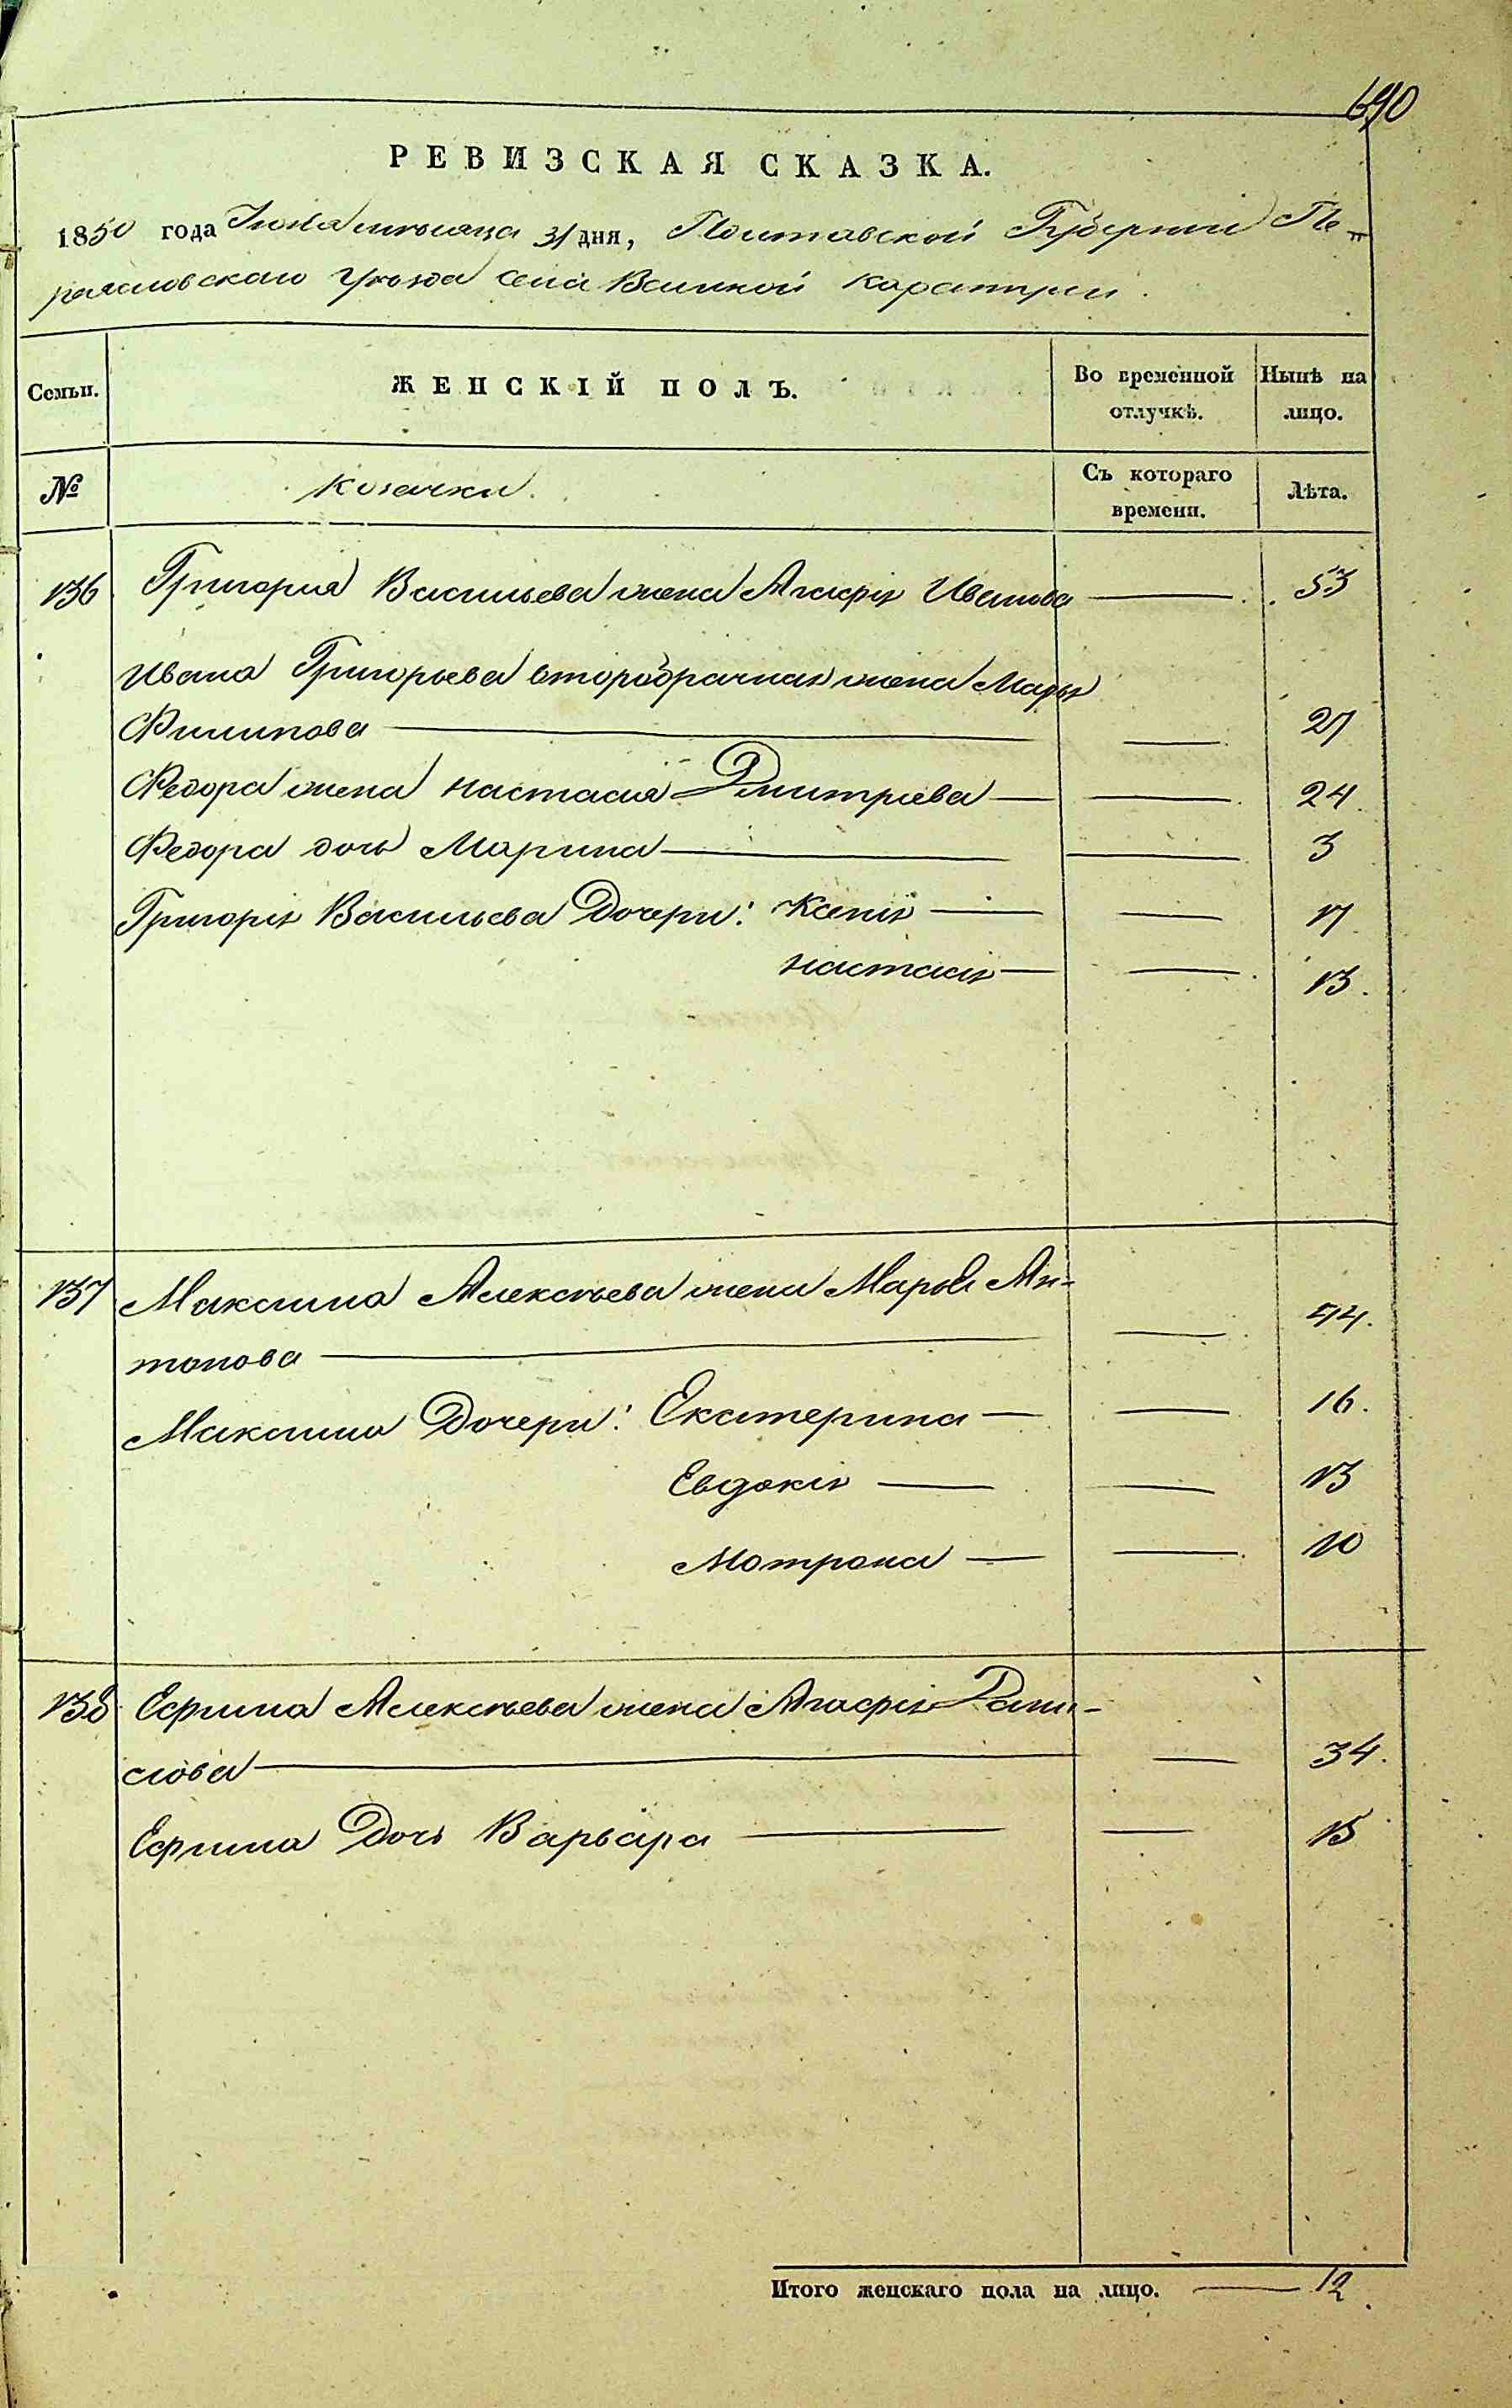 690
РЕВИЗСКАЯ СКАЗКА.
1850 года Іюля мѣсяца 31 дня, Полтавской Губерніи Пе-
реяславскаго Уѣзда Села Великой Каратули.
Семьи. ЖЕНСКІЙ ПОЛЪ. Во временной отлучкѣ. Нынѣ на лицо.
№ Козачки. Съ котораго времени. Лѣта.
136 Григорія Васильева жена Агафія Иванова 53
Ивана Григорьева второбрачная жена Марья
Филипова 27
Федора жена Настасія Дмитріева 24
Федора дочь Марина 3
Григорія Васильева Дочери: Ксенія 17
Настасія 13.
137 Максима Алексѣева жена Марфа Ан-
тонова 44.
Максима Дочери: Екатерина 16.
Евдокія 13
Мотрона 10
138 Ефима Алексѣева жена Агафія Дани-
лова 34.
Ефима Дочь Варвара 15
Итого женскаго пола на лицо. 12